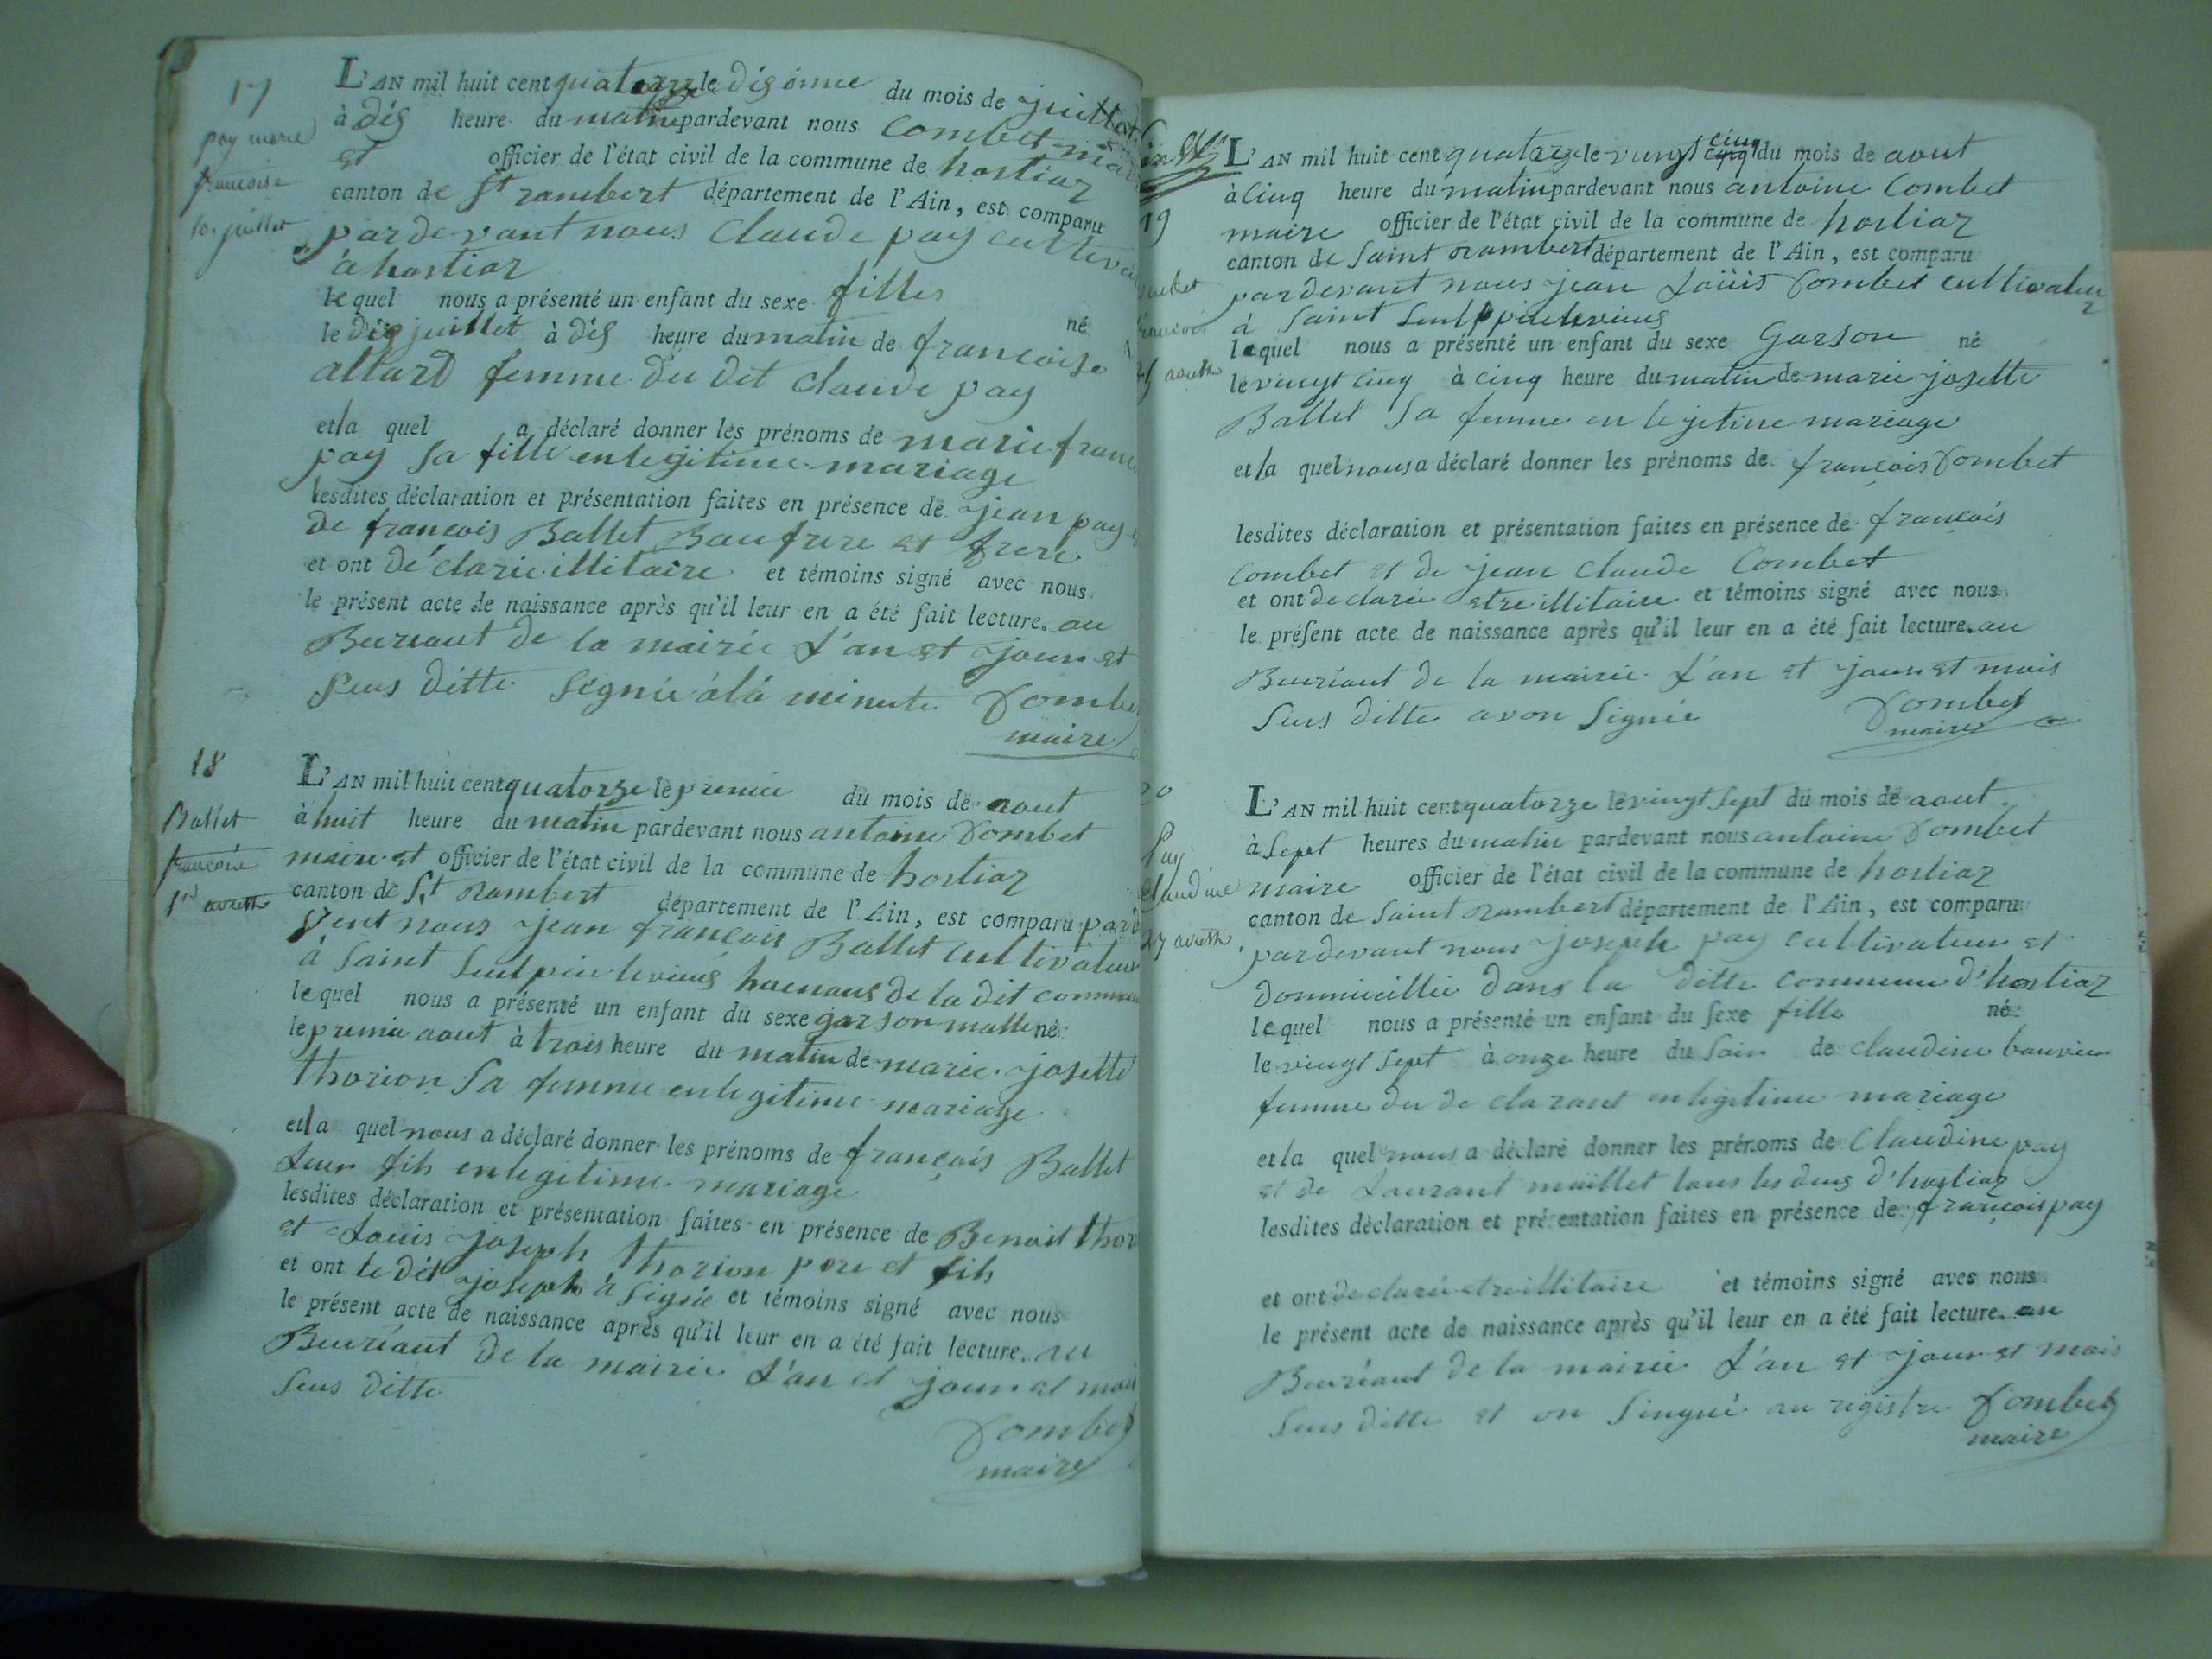 17
pay marie
francoise
10. juillet
L'AN mil huit cent quatorze le dis du mois de juillet
à dis heure du matin pardevant nous Combet
et officier de l'état civil de la commune de hostiaz
canton de St rambert département de l'Ain, est comparu
pardevant nous Claude pay
à hostiaz
lequel nous a présenté un enfant du sexe filles
né
le dis juillet à dis heure du matin de francoise
allard femme du dit Claude pay
et la quel a déclaré donner les prénoms de marie
pay sa fille en legitime mariage
lesdites déclaration et présentation faites en présence de jean pay
de francois Ballet Baufrere et frere
et ont déclarie illitaire et témoins signé avec nous
le présent acte de naissance après qu'il leur en a été fait lecture. au
Bureaut de la mairie L'an et jour et
seus ditte signie à la minute
maire
18
Ballet
francois
1er aoust
L'AN mil huit cent quatorze le premié du mois de aout
à huit heure du matin pardevant nous antoine Combet
maire et officier de l'état civil de la commune de hostiaz
canton de St rambert département de l'Ain, est comparu
vent nous jean françois Ballet cultivateur
à Saint de la dit
lequel nous a présenté un enfant du sexe garson malle né
le premié aout à trois heure du matin de marie josette
thorion sa femme en legitime mariage
et la quel nous a déclaré donner les prénoms de françois Ballet
Leur fils en legitime mariage
lesdites déclaration et présentation faites en présence de Benoit
et Louis joseph thorion pere et fils
et ont le dit joseph à signie et témoins signé avec nous
le présent acte de naissance après qu'il leur en a été fait lecture. au
Bureaut de la mairie L'an et jour et
seus ditte
Combet
maire
19
L'AN mil huit cent quatorze le vingt cinq du mois de aout
à cinq heure du matin pardevant nous antoine Combet
maire officier de l'état civil de la commune de hostiaz
canton de Saint rambert département de l'Ain, est comparu
pardevant nous jean Loüis Combet cultivateur
à Saint
lequel nous a présenté un enfant du sexe Garson né
le vingt cinq à cinq heure du matin de marie josette
Ballet sa femme en legitime mariage
et la quel nous a déclaré donner les prénoms de françois Combet
lesdites déclaration et présentation faites en présence de françois
Combet et de jean claude Combet
et ont declarée etre illitaire et témoins signé avec nous
le présent acte de naissance après qu'il leur en a été fait lecture. au
Bureaut de la mairie L'an et jour et mois
seus ditte avon signie
Combet
maire
20
Pay
claudine
27 aoust
L'AN mil huit cent quatorze le vingt sept du mois de aout
à sept heures du matin pardevant nous antoine Combet
maire officier de l'état civil de la commune de hostiaz
canton de Saint rambert département de l'Ain, est comparu
pardevant nous joseph pay cultivateur et
dommicillie dans la ditte commune d'hostiaz
lequel nous a présenté un enfant du sexe fille né
le vingt sept à onze heure du soir de claudine
femme du declarant en legitime mariage
et la quel nous a déclaré donner les prénoms de Claudine pay
et de Laurant maillet tous les deus d'hostiaz
lesdites déclaration et présentation faites en présence de françois pay
et ont declarée etre illitaire et témoins signé avec nous
le présent acte de naissance après qu'il leur en a été fait lecture. au
Bureaut de la mairie L'an et jour et mois
seus ditte et on singné au registre Combet
maire